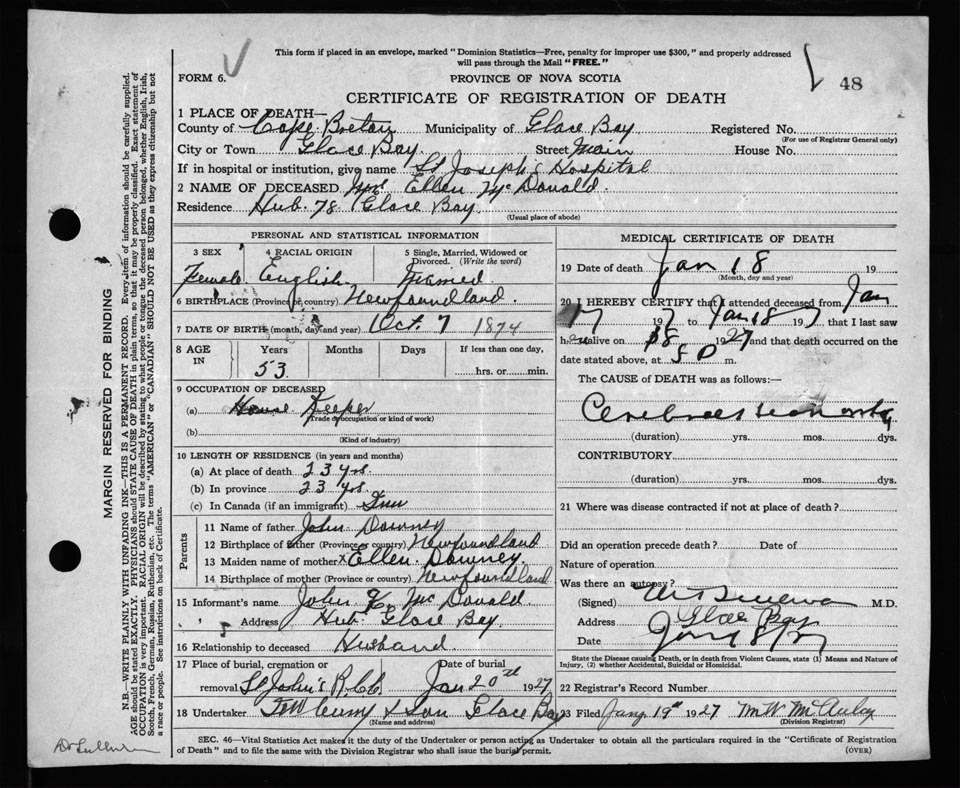 This form if placed in an envelope, marked "Dominion Statistics—Free, penalty for improper use $300," and properly addressed
will pass through the Mail "FREE."
FORM 6.
PROVINCE OF NOVA SCOTIA
48
CERTIFICATE OF REGISTRATION OF DEATH
1 PLACE OF DEATH—
County of Cape Breton Municipality of Glace Bay Registered No.
(For use of Registrar General only)
City or Town Glace Bay Street Main House No.
If in hospital or institution, give name St Joseph's Hospital
2 NAME OF DECEASED Mrs Ellen McDonald.
Residence Hub. 78 Glace Bay
(Usual place of abode)
PERSONAL AND STATISTICAL INFORMATION
3 SEX 4 RACIAL ORIGIN 5 Single, Married, Widowed or Divorced. (Write the word)
Female English Married
6 BIRTHPLACE (Province or country) Newfoundland.
7 DATE OF BIRTH (month, day and year) Oct. 7 1874
8 AGE IN Years Months Days If less than one day,
53 hrs. or min.
9 OCCUPATION OF DECEASED
(a) House Keeper
(Trade occupation or kind of work)
(b)
(Kind of industry)
10 LENGTH OF RESIDENCE (in years and months)
(a) At place of death 23 yrs
(b) In province 23 yrs.
(c) In Canada (if an immigrant)
Parents
11 Name of father John Downey
12 Birthplace of father (Province or country) Newfoundland
13 Maiden name of mother x Ellen Downey.
14 Birthplace of mother (Province or country) Newfoundland
15 Informant's name John McDonald
" Address Hub. Glace Bay
16 Relationship to deceased Husband.
17 Place of burial, cremation or removal St John's R.C.C. Date of burial Jan 20th 1927
18 Undertaker & Son Glace Bay
(Name and address)
MEDICAL CERTIFICATE OF DEATH
19 Date of death Jan 18 19
(Month, day and year)
20 I HEREBY CERTIFY that I attended deceased from Jan
17 1927 to Jan 18 1927 that I last saw
her alive on 18 1927 and that death occurred on the
date stated above, at 8 P m.
The CAUSE of DEATH was as follows:—
Cerebral
(duration) yrs. mos. dys.
CONTRIBUTORY
(duration) yrs. mos. dys.
21 Where was disease contracted if not at place of death?
Did an operation precede death? Date of
Nature of operation
Was there an autopsy?
(Signed) M.D.
Address Glace Bay
Date Jan 18/27
State the Disease causing Death, or in death from Violent Causes, state (1) Means and Nature of
Injury, (2) whether Accidental, Suicidal or Homicidal.
22 Registrar's Record Number
23 Filed Jany 19th 1927 M.W. McAulay
(Division Registrar)
SEC. 46—Vital Statistics Act makes it the duty of the Undertaker or person acting as Undertaker to obtain all the particulars required in the "Certificate of Registration
of Death" and to file the same with the Division Registrar who shall issue the burial permit.
(OVER)
MARGIN RESERVED FOR BINDING
N.B.—WRITE PLAINLY WITH UNFADING INK—THIS IS A PERMANENT RECORD. Every item of information should be carefully supplied.
AGE should be stated EXACTLY. PHYSICIANS should STATE CAUSE OF DEATH in plain terms, so that it may be properly classified. Exact statement of
OCCUPATION is very important. RACIAL ORIGIN will be described by stating to what people or tongue the deceased person belonged, whether English, Irish,
Scotch, French, German, Russian, Ruthenian, etc. The terms "AMERICAN" or "CANADIAN" SHOULD NOT BE USED as they express citizenship but not
a race or people. See instructions on back of Certificate.